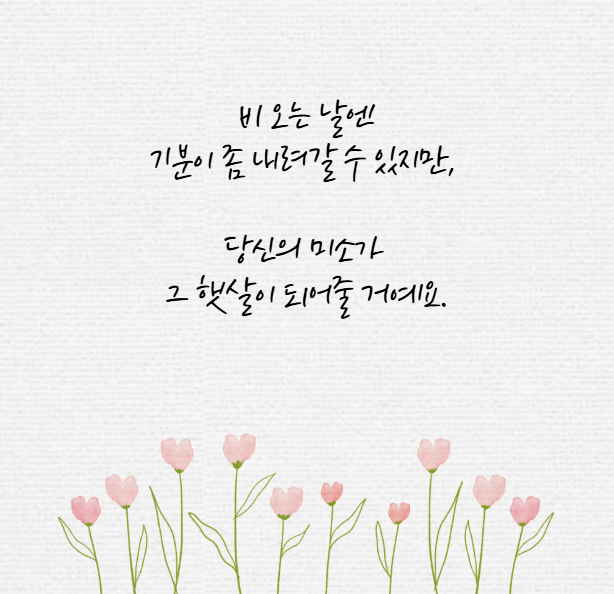 비 오는 날엔
기분이 좀 내려갈 수 있지만,
당신의 미소가
그 햇살이 되어줄 거예요.